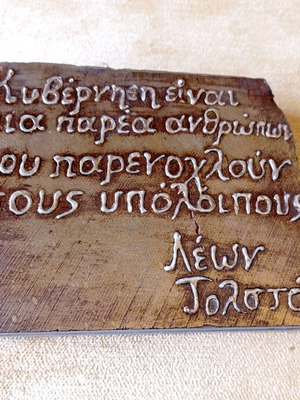 Κυβέρνηση είναι
μια παρέα ανθρώπων
που παρενοχλούν
τους υπόλοιπους
Λέων
Τολστό